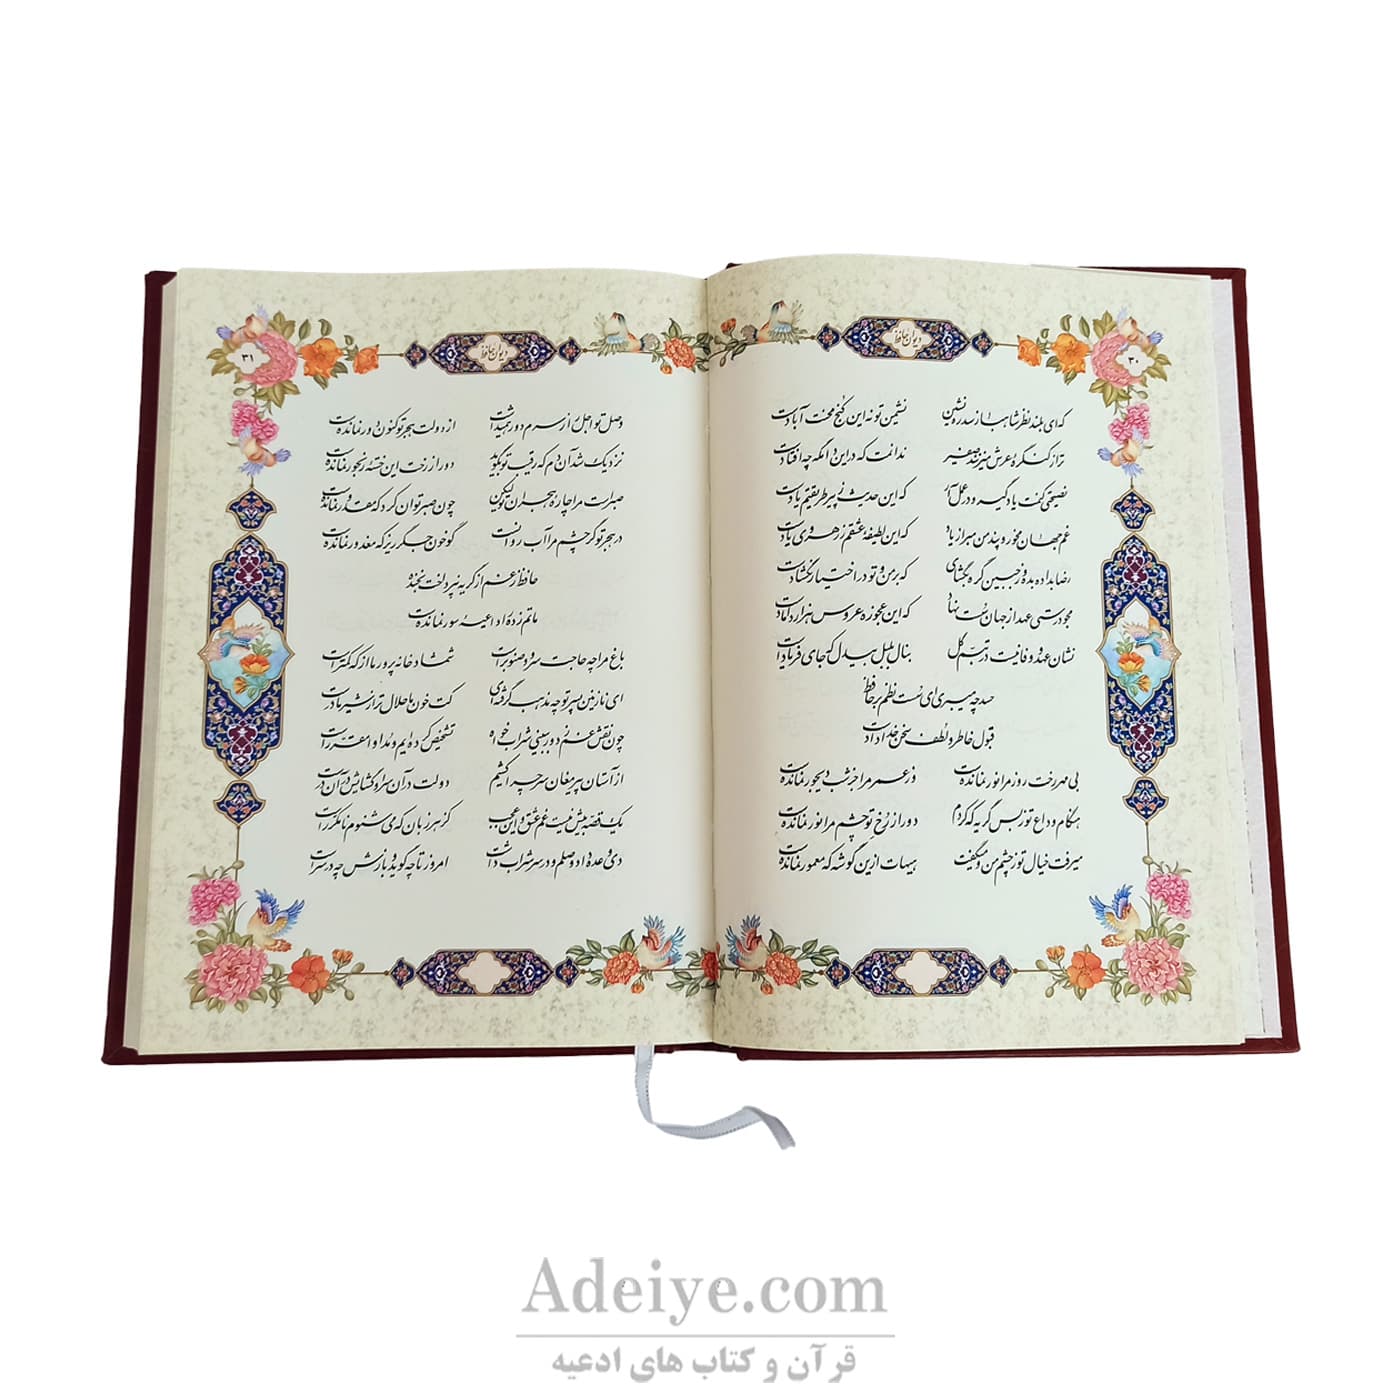 دیوان حافظ
۳۰
که ای بلند نظر شاهباز سدره نشین نشیمن تو نه این کنج محنت آبادست
ترا ز کنگرهٔ عرش میزنند صفیر ندانمت که درین دامگه چه افتادست
نصیحتی کنمت یاد گیر و در عمل آر که این حدیث ز پیر طریقتم یادست
غم جهان مخور و پند من مبر از یاد که این لطیفهٔ عشقم ز رهروی یادست
رضا بداده بده وز جبین گره بگشای که بر من و تو در اختیار نگشادست
مجو درستی عهد از جهان سست نهاد که این عجوزه عروس هزار دامادست
نشان عهد و وفا نیست در تبسم گل بنال بلبل بیدل که جای فریادست
حسد چه میبری ای سست نظم بر حافظ
قبول خاطر و لطف سخن خدادادست
بی مهر رخت روز مرا نور نماندست وز عمر مرا جز شب دیجور نماندست
هنگام وداع تو ز بس گریه که کردم دور از رخ تو چشم مرا نور نماندست
میرفت خیال تو ز چشم من و میگفت هیهات ازین گوشه که معمور نماندست
دیوان حافظ
۳۱
وصل تو اجل را ز سرم دور همیداشت از دولت هجر تو کنون دور نماندست
نزدیک شد آن دم که رقیب تو بگوید دور از رخت این خستهٔ رنجور نماندست
صبرست مرا چارهٔ هجران تو لیکن چون صبر توان کرد که مقدور نماندست
در هجر تو گر چشم مرا آب روانست گو خون جگر ریز که معذور نماندست
حافظ ز غم از گریه نپرداخت بخنده
ماتم زده را داعیهٔ سور نماندست
باغ مرا چه حاجت سرو و صنوبرست شمشاد خانه پرور ما از که کمترست
ای نازنین پسر تو چه مذهب گرفته‌ای کت خون ما حلال تر از شیر مادرست
چون نقش غم ز دور ببینی شراب خواه تشخیص کرده ایم و مداوا مقررست
از آستان پیر مغان سر چرا کشیم دولت در آن سرا و گشایش در آن درست
یک قصه بیش نیست غم عشق و این عجب کز هر زبان که می شنوم نامکررست
دی وعده داد وصلم و در سر شراب داشت امروز تا چه گوید و بازش چه در سرست
Adeiye.com
قرآن و کتاب های ادعیه